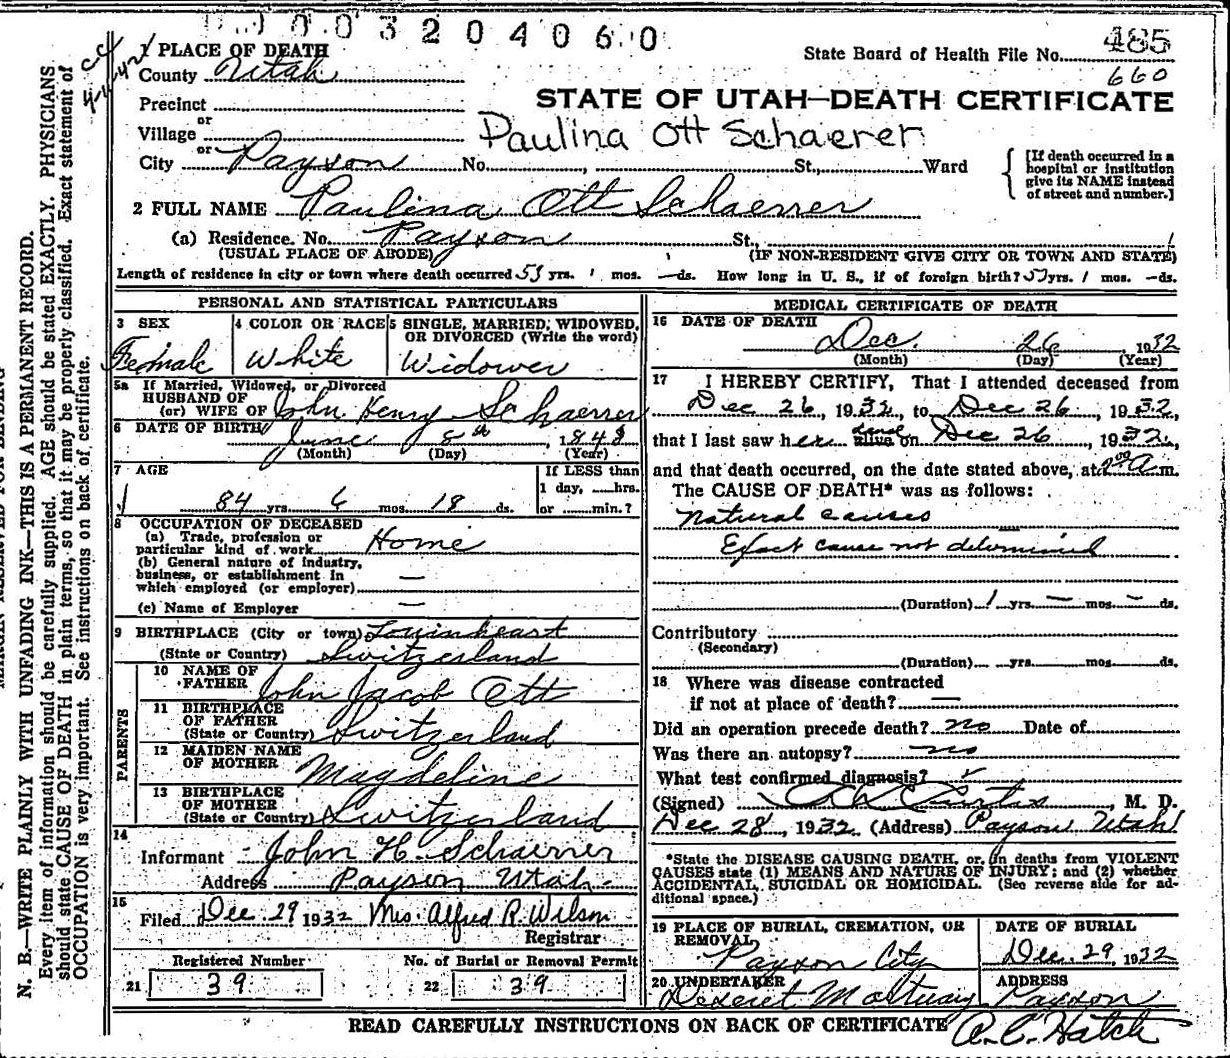 0 0 3 2 0 4 0 6 0
State Board of Health File No. 485
660
1 PLACE OF DEATH
County Utah
Precinct
or
Village
or
City Payson No. , St., Ward
STATE OF UTAH—DEATH CERTIFICATE
Paulina Ott Schaerer
[If death occurred in a
hospital or institution
give its NAME instead
of street and number.]
2 FULL NAME Paulina Ott Schaerrer
(a) Residence. No. Payson St.,
(USUAL PLACE OF ABODE) (IF NON-RESIDENT GIVE CITY OR TOWN AND STATE)
Length of residence in city or town where death occurred 53 yrs. 1 mos. — ds. How long in U. S., if of foreign birth? yrs. 1 mos. — ds.
PERSONAL AND STATISTICAL PARTICULARS
3 SEX
Female
4 COLOR OR RACE
White
5 SINGLE, MARRIED, WIDOWED,
OR DIVORCED (Write the word)
Widower
5a If Married, Widowed, or Divorced
HUSBAND OF
(or) WIFE OF John Henry Schaerrer
6 DATE OF BIRTH June 8th, 1848
(Month) (Day) (Year)
7 AGE
If LESS than
1 day, hrs.
or min.?
84 yrs. 6 mos. 18 ds.
8 OCCUPATION OF DECEASED
(a) Trade, profession or
particular kind of work Home
(b) General nature of industry,
business, or establishment in
which employed (or employer) —
(c) Name of Employer —
9 BIRTHPLACE (City or town)
(State or Country) Switzerland
PARENTS
10 NAME OF
FATHER John Jacob Ott
11 BIRTHPLACE
OF FATHER
(State or Country) Switzerland
12 MAIDEN NAME
OF MOTHER Magdeline
13 BIRTHPLACE
OF MOTHER
(State or Country) Switzerland
14
Informant John H. Schaerrer
Address Payson Utah
15
Filed Dec. 29 1932 Mrs. Alfred R. Wilson
Registrar
Registered Number
21 39
No. of Burial or Removal Permit
22 39
MEDICAL CERTIFICATE OF DEATH
16 DATE OF DEATH
Dec. 26, 1932
(Month) (Day) (Year)
17 I HEREBY CERTIFY, That I attended deceased from
Dec 26, 1932, to Dec 26, 1932,
that I last saw her dead alive on Dec 26, 1932,
and that death occurred, on the date stated above, at A m.
The CAUSE OF DEATH* was as follows:
Natural causes
Exact cause not determined
(Duration) 1 yrs. — mos. — ds.
Contributory
(Secondary)
(Duration) yrs. mos. ds.
18 Where was disease contracted
if not at place of death? —
Did an operation precede death? no Date of
Was there an autopsy? no
What test confirmed diagnosis?
(Signed) Curtis, M. D.
Dec 28, 1932 (Address) Payson Utah
*State the DISEASE CAUSING DEATH, or, in deaths from VIOLENT
CAUSES state (1) MEANS AND NATURE OF INJURY; and (2) whether
ACCIDENTAL, SUICIDAL OR HOMICIDAL. (See reverse side for ad-
ditional space.)
19 PLACE OF BURIAL, CREMATION, OR
REMOVAL
Payson City
DATE OF BURIAL
Dec. 29, 1932
20 UNDERTAKER
Deseret Mortuary
ADDRESS
Payson
READ CAREFULLY INSTRUCTIONS ON BACK OF CERTIFICATE
A. C. Hatch
N. B.—WRITE PLAINLY WITH UNFADING INK—THIS IS A PERMANENT RECORD.
Every item of information should be carefully supplied. AGE should be stated EXACTLY. PHYSICIANS
should state CAUSE OF DEATH in plain terms, so that it may be properly classified. Exact statement of
OCCUPATION is very important. See instructions on back of certificate.